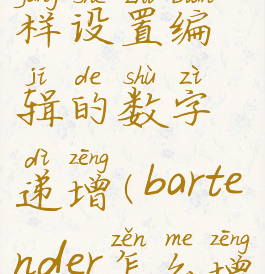 样设置编
jí de shù zì
辑的数字
dì zēng
递增(barte
zěn me zēng
nder怎么增